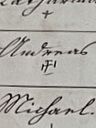 Andreas
Michael.